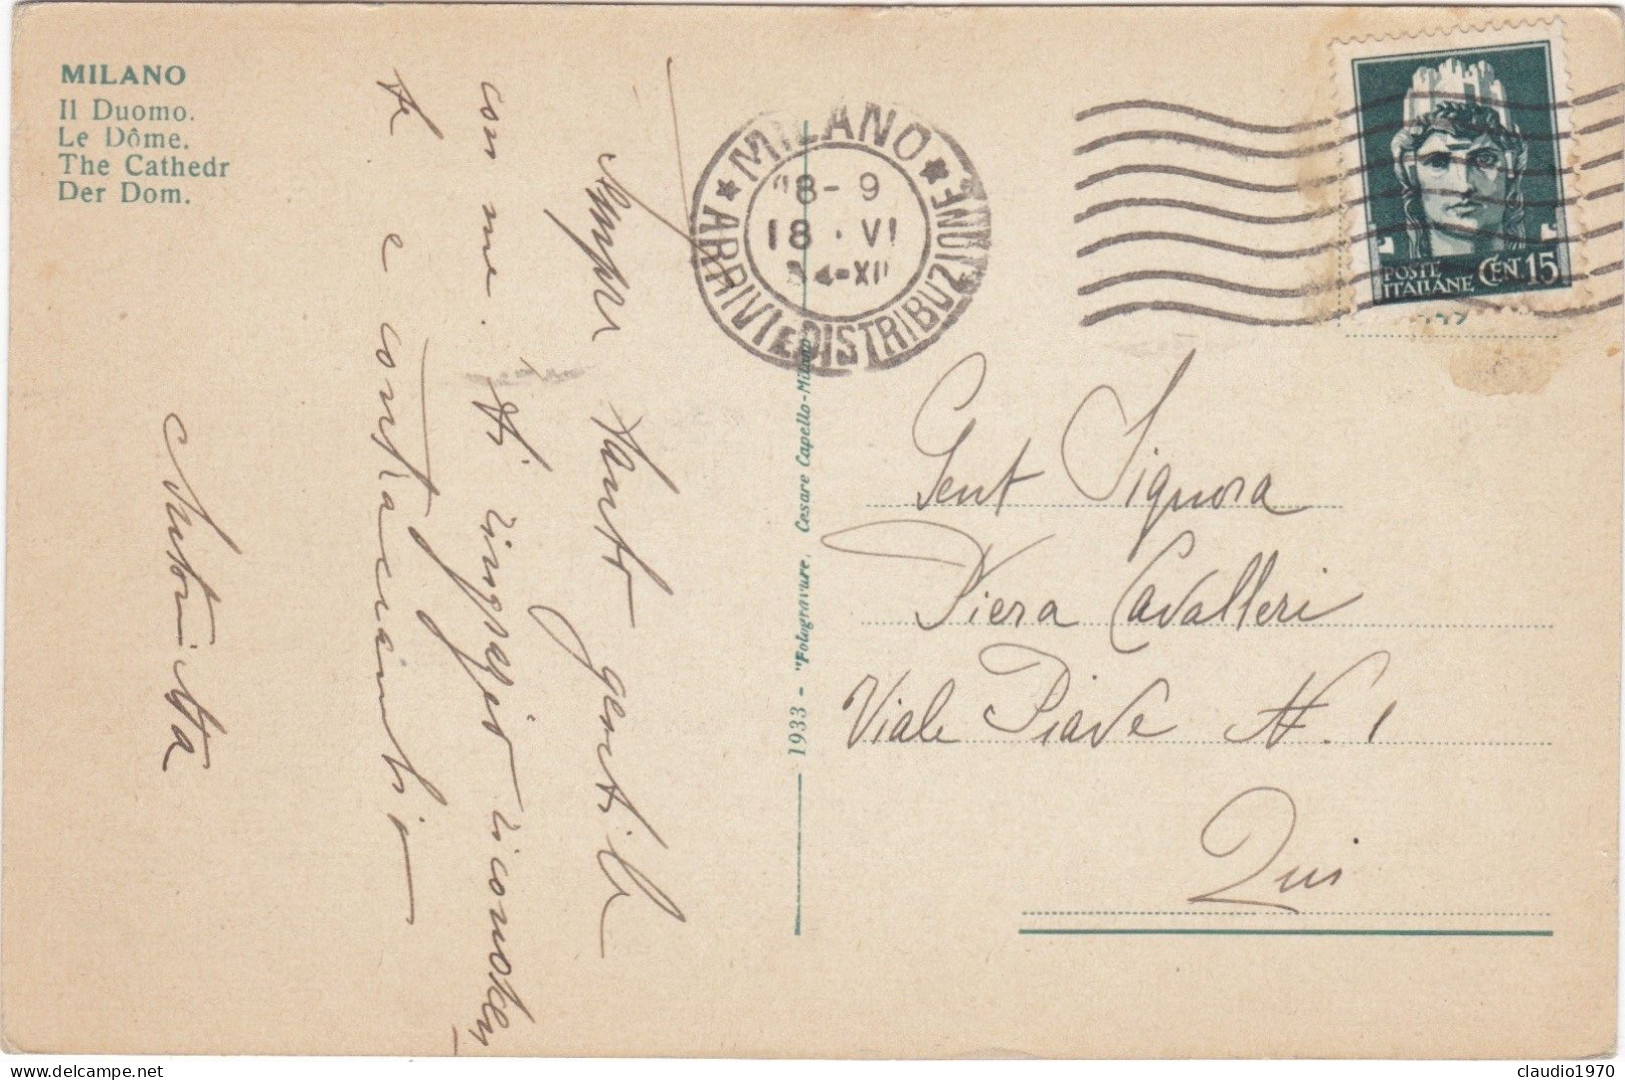 MILANO
Il Duomo.
Le Dôme.
The Cathedr
Der Dom.
Sempre tanto gentile
con me. Ti ringrazio
e contraccambio
Antonietta
1933 - "Fotogravure. Cesare Capello-Milano
MILANO
ARRIVI E DISTRIBUZIONE
18 - 9
18 . VI
34-XII
POSTE
ITALIANE
CENT 15
Gent Signora
Piera Cavalleri
Viale Piave N. 1
Qui
delcampe.net
claudio1970